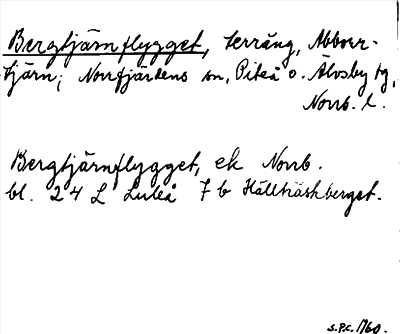 Bergtjärnflygget, terräng, Abbor-
tjärn; Norrfjärdens sn, Piteå o. Älvsby tg,
Norrb. l.
Bergtjärnflygget, ek Norrb.
bl. 24 L Luleå 7 b Hällträskberget.
S.P.C. 1960.